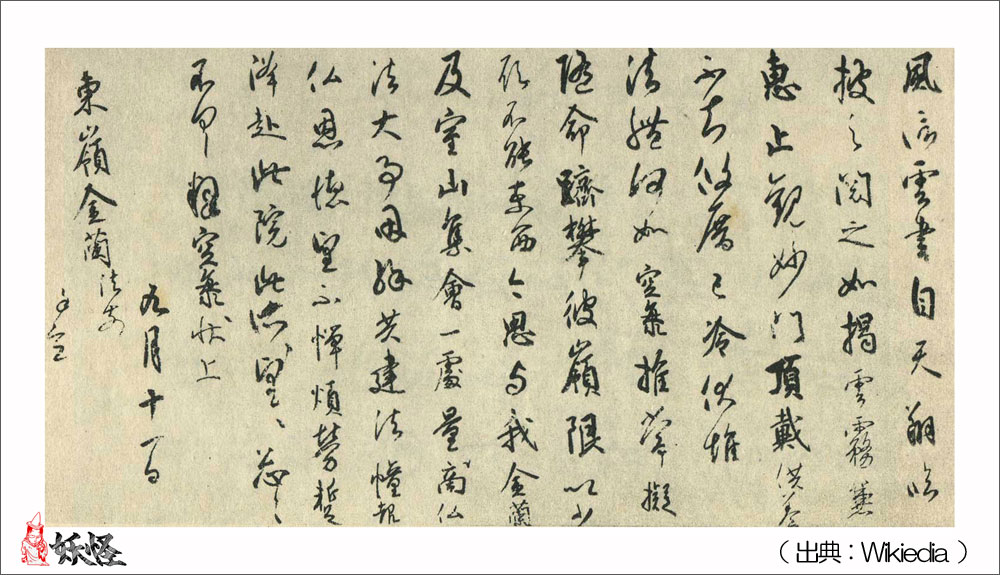 風信雲書自天翔臨
披之閲之如掲雲霧兼
恵止観妙門頂戴供養
不知攸厝已冷伏惟
法體何如空海推常擬
隨命躋攀彼嶺限以少
願不能東西今思与我金蘭
及室山集會一處量商仏
法大事因縁共建法幢報
仏恩徳望不憚煩勞蹔
降赴此院此所望々々忩々
不具釋空海状上
九月十一日
東嶺金蘭法前
謹空
妖怪
（出典：Wikiedia ）